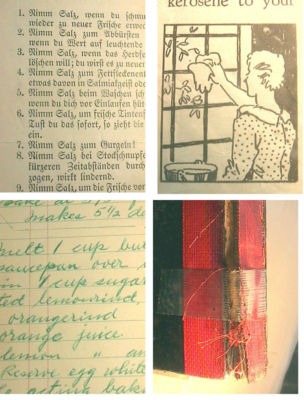 1. Nimm Salz, wenn du schmu
wieder zu neuer Frische erwec
2. Nimm Salz zum Abbürsten
wenn du Wert auf leuchtende
3. Nimm Salz, wenn das Herdfe
löschen will; du wirst es zu neuer
4. Nimm Salz zum Fettfleckenent
etwas davon in Salmiakgeist ode
5. Nimm Salz beim Waschen ich
wenn du dich vor Einlaufen hüt
6. Nimm Salz, um frische Tinten
Tust du das sofort, so zieht die
ein.
7. Nimm Salz zum Gurgeln!
8. Nimm Salz bei Stockschnupfe
kürzeren Zeitabständen durch
zogen, wirkt lindernd.
9. Nimm Salz, um die Frische vor
kerosene to your
makes 5½ de
1 cup bu
saucepan over
in 1 cup sugar
ted lemonrind,
orangerind
orange juice
lemon " an
Reserve egg white
acting bake